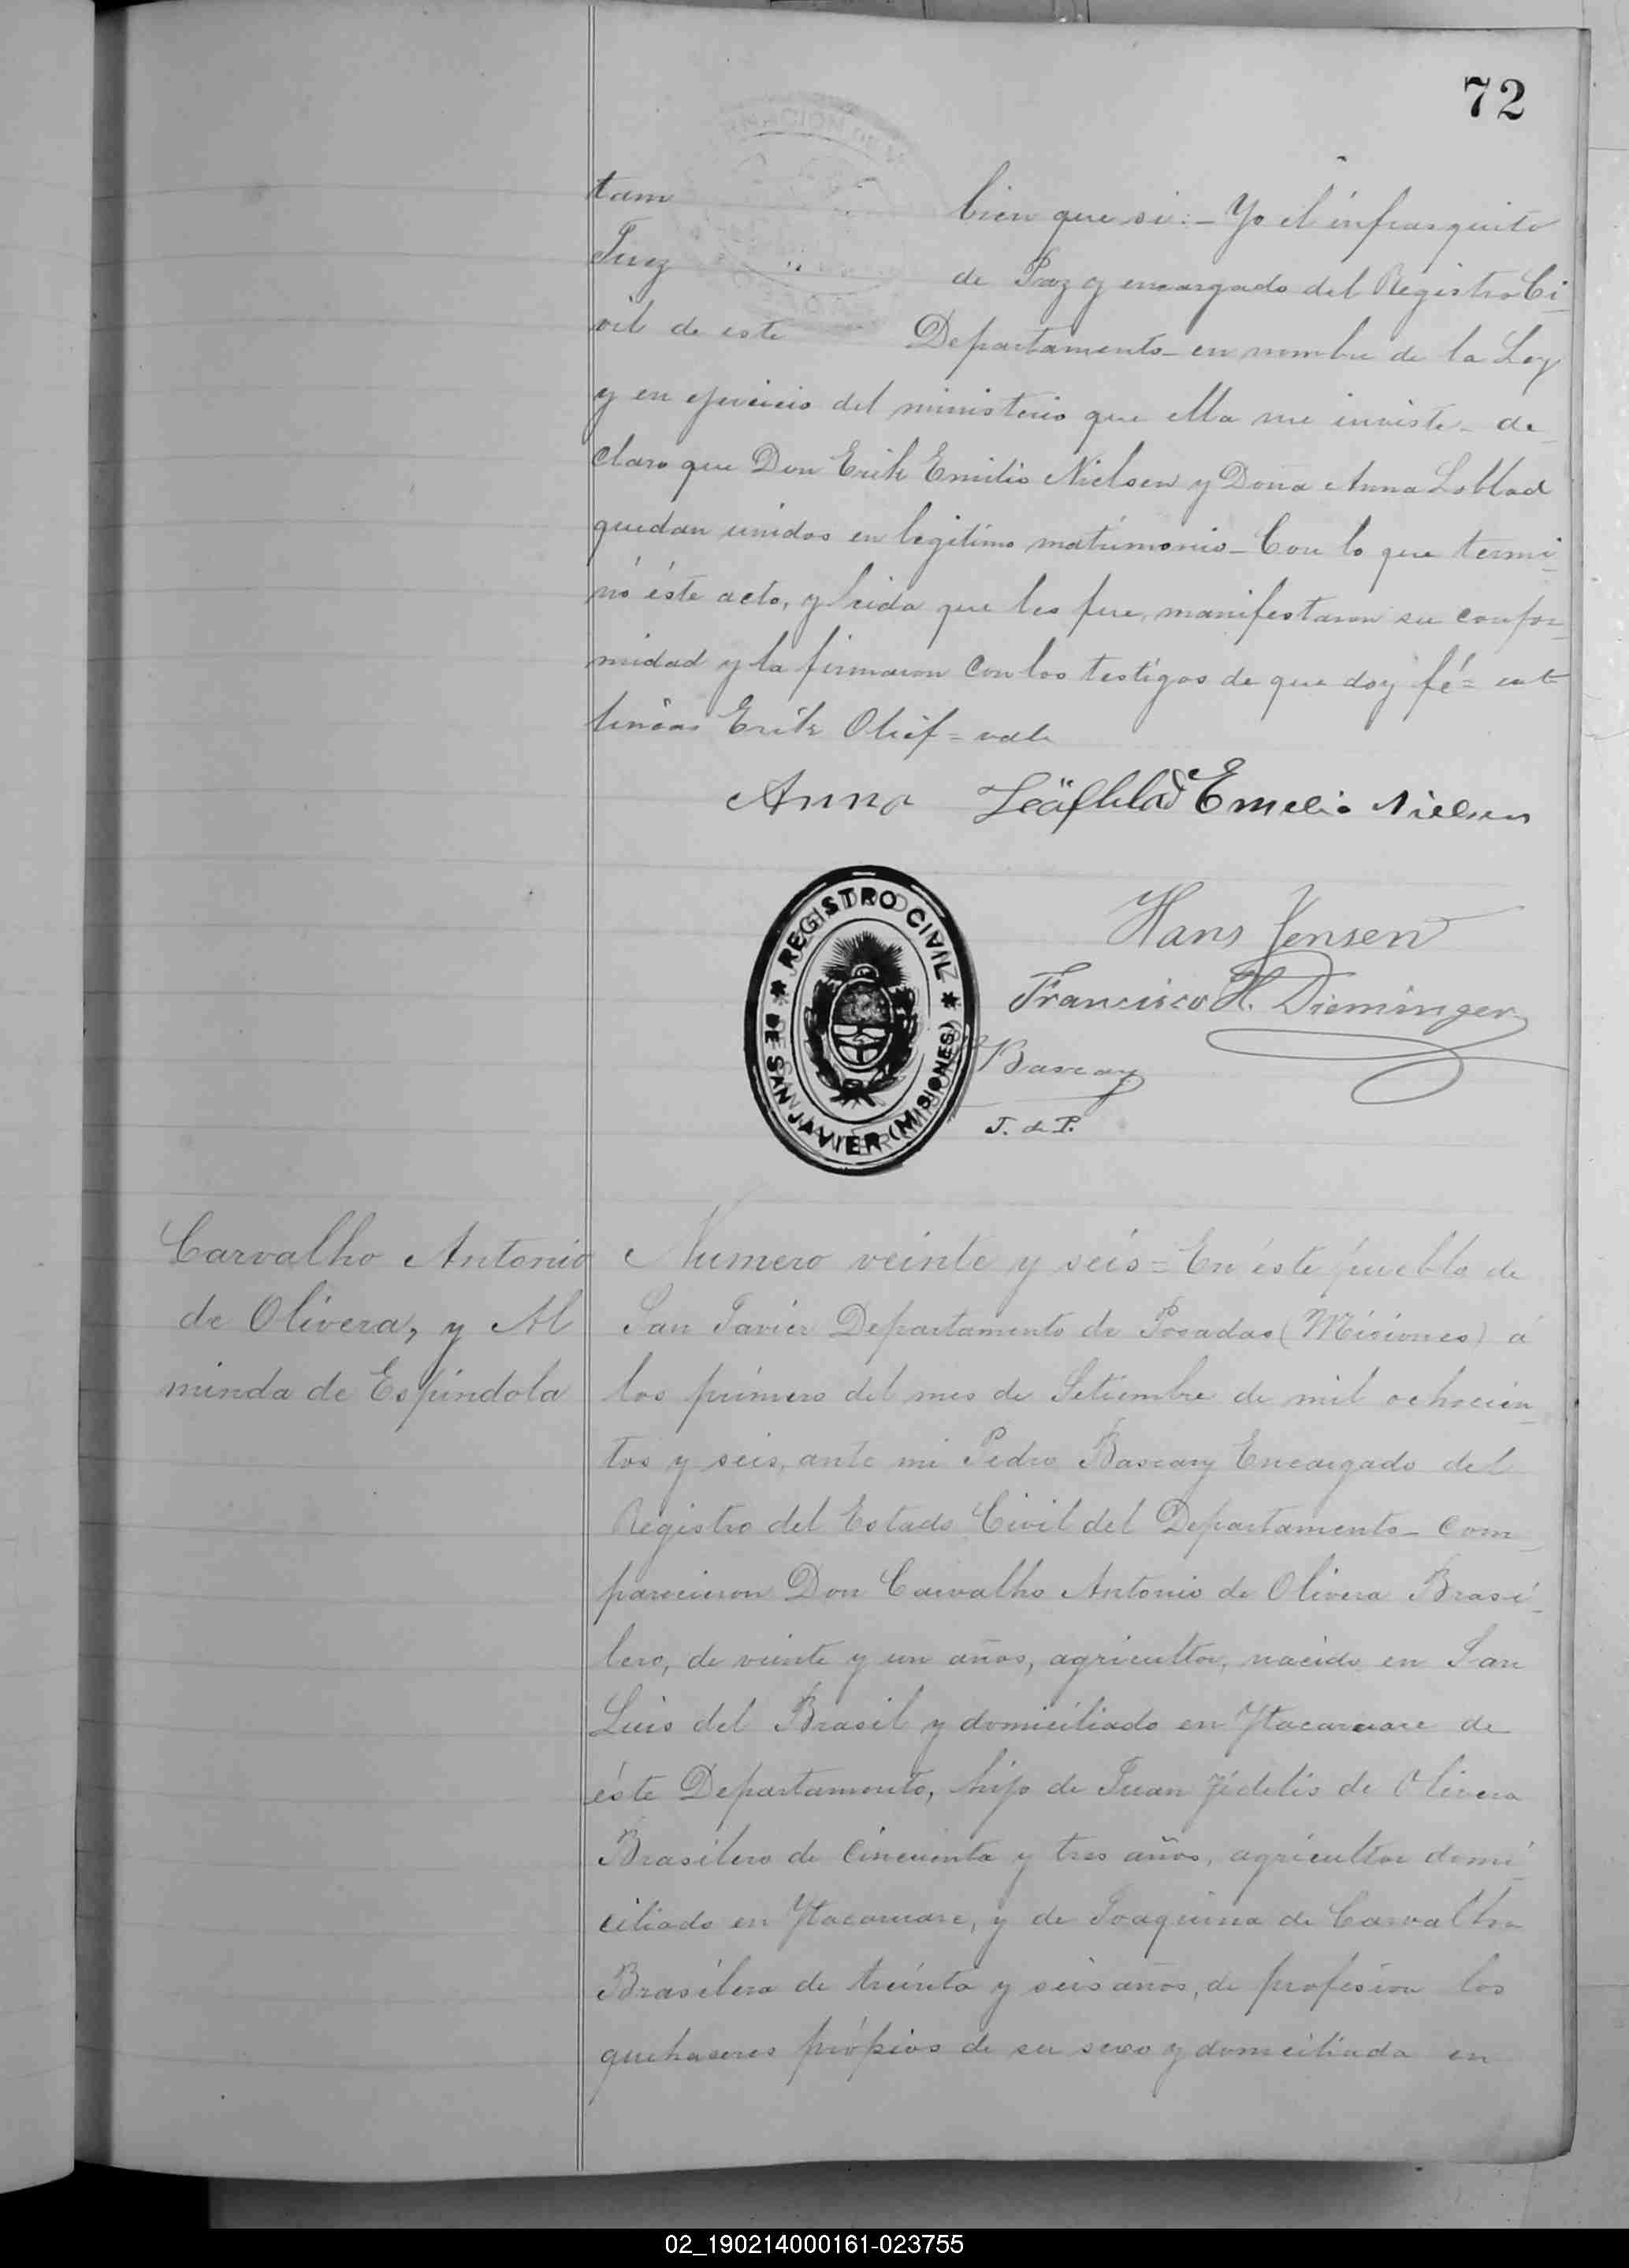 72
tam bien que si:- Yo el infrasquito
Juez de Paz y encargado del Registro Ci
vil de este Departamento- en nombre de la Ley
y en ejercicio del ministerio que ella me inviste- de
claro que Don Erik Emilio Nielsen y Doña Anna Loblad
quedan unidos en legítimo matrimonio- Con lo que termi
nó éste acto, y leida que les fue, manifestaron su confor
midad y la firmaron con los testigos de que doy fé= ent
lineas Erik Olief= vale
Anna Emelio Nielsen
Hans Jensen
Francisco H. Dieminger
Bascary
J. de P.
REGISTRO CIVIL
DE SAN JAVIER (MISIONES)
Carvalho Antonio
de Olivera, y Al
minda de Espindola
Numero veinte y seis= En éste pueblo de
San Javier Departamento de Posadas (Misiones) á
los primero del mes de Setiembre de mil ochocien
tos y seis, ante mi Pedro Bascary Encargado del
Registro del Estado Civil del Departamento- com
parecieron Don Carvalho Antonio de Olivera Brasi
lero, de veinte y un años, agricultor, nacido en San
Luis del Brasil y domiciliado en Ytacaruare de
éste Departamento, hijo de Juan Fidelis de Olivera
Brasilero de cincuenta y tres años, agricultor domi
ciliado en Ytacaruare, y de Joaquina de Carvalho
Brasilera de treinta y seis años, de profesion los
quehaseres própios de su sexo y domiciliada en
02_190214000161-023755